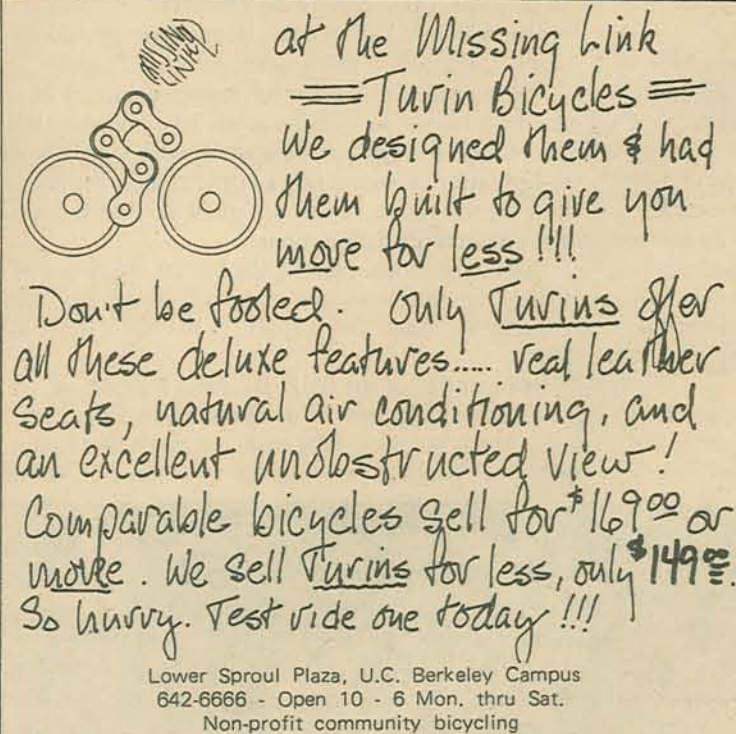 MISSING LINK
at the Missing Link
Turin Bicycles
We designed them & had
them built to give you
more for less !!!!
Don't be fooled. Only Turins offer
all these deluxe features..... real leather
seats, natural air conditioning, and
an excellent unobstructed view!
Comparable bicycles sell for $169.00 or
more. We sell Turins for less, only $149.00.
So hurry. Test ride one today !!!
Lower Sproul Plaza, U.C. Berkeley Campus
642-6666 - Open 10 - 6 Mon. thru Sat.
Non-profit community bicycling